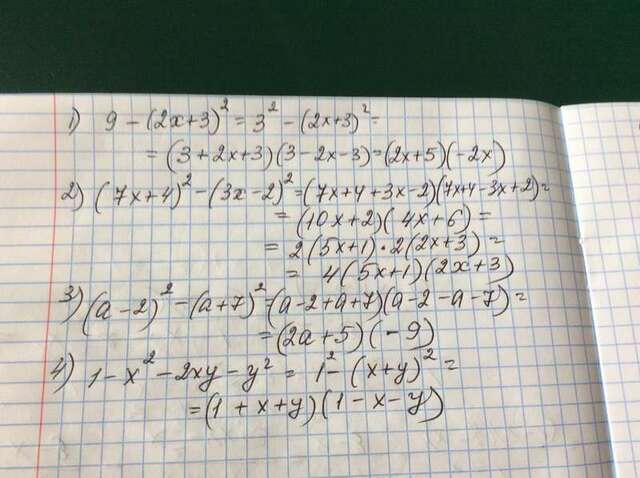 1) 9 - (2x+3)² = 3² - (2x+3)² =
= (3+2x+3)(3-2x-3) = (2x+5)(-2x)
2) (7x+4)² - (3x-2)² = (7x+4+3x-2)(7x+4-3x+2) =
= (10x+2)(4x+6) =
= 2(5x+1)·2(2x+3) =
= 4(5x+1)(2x+3)
3) (a-2)² - (a+7)² = (a-2+a+7)(a-2-a-7) =
= (2a+5)(-9)
4) 1-x²-2xy-y² = 1² - (x+y)² =
= (1+x+y)(1-x-y)